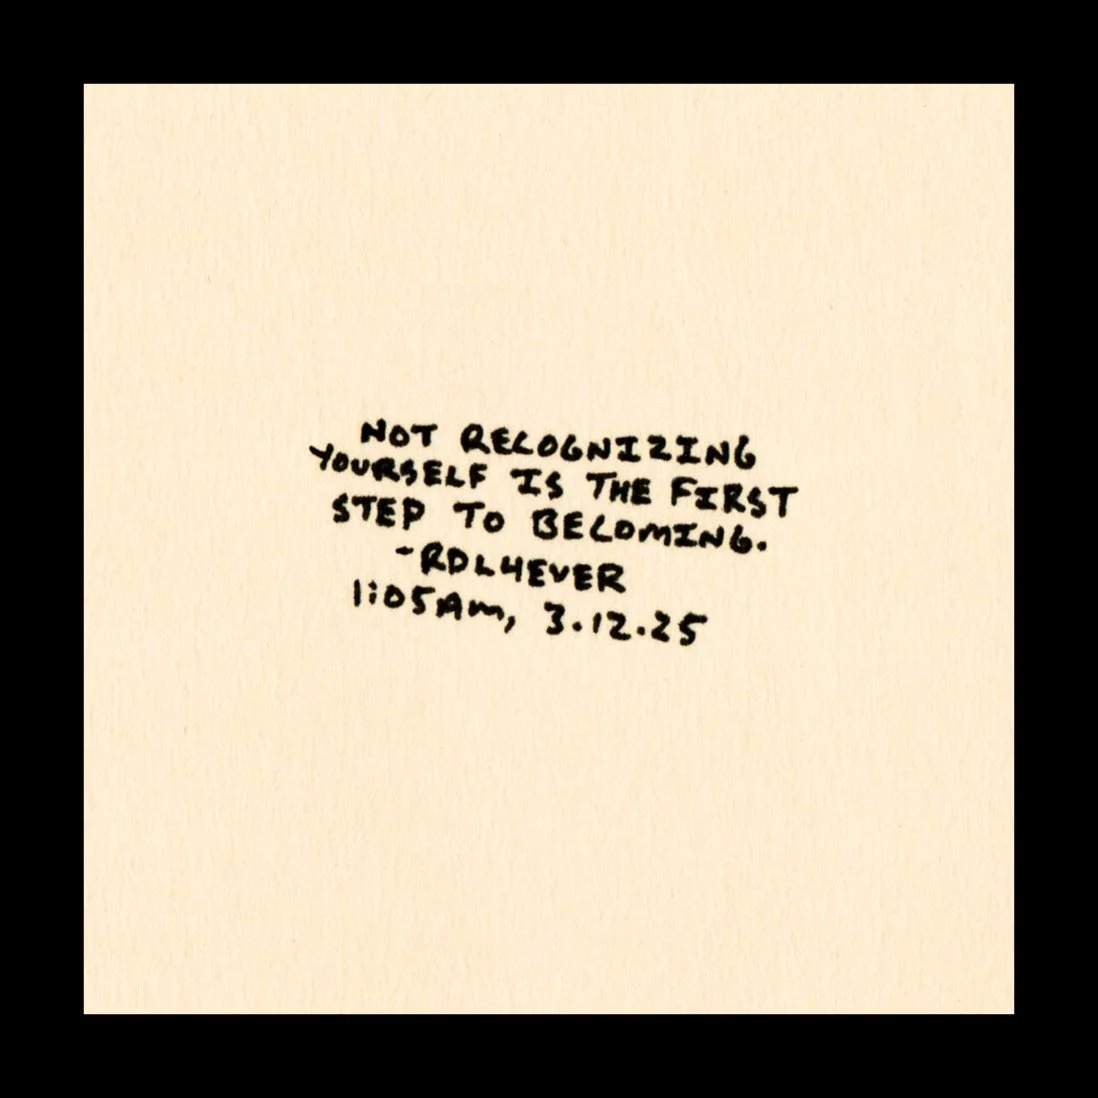 NOT RECOGNIZING
YOURSELF IS THE FIRST
STEP TO BECOMING.
-RDL4EVER
1:05AM, 3.12.25